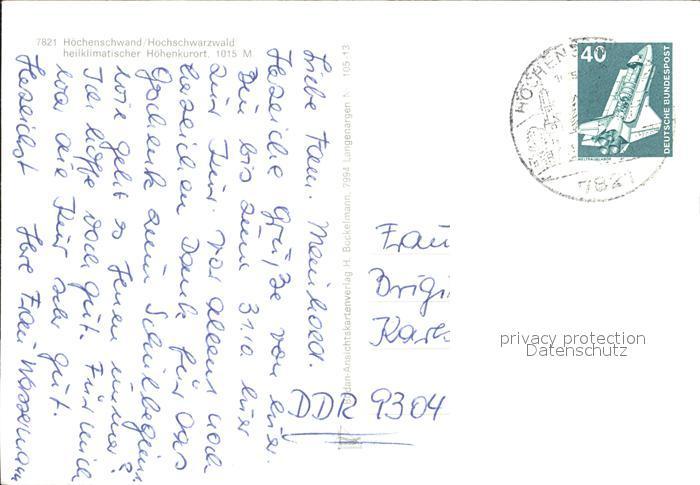 7821 Höchenschwand/Hochschwarzwald
heilklimatischer Höhenkurort. 1015 M
Liebe Fam. Meinhold.
Herzliche Grüße von hier.
Bin bis zum 31.10 hier
zur Kur. Vor allem noch
herzlichen Dank für das
Geschenk zum Schulbeginn.
Wie geht es Ihnen immer?
Ich hoffe doch gut. Für mich
war die Kur sehr gut.
Herzlichst Ihre Frau
Bodan-Ansichtskartenverlag H. Bockelmann, 7994 Langenargen 105-13
40
DEUTSCHE BUNDESPOST
WELTRAUMLABOR
HÖCHENS
7821
Frau
Brigi
Karl-
DDR 9304
privacy protection
Datenschutz